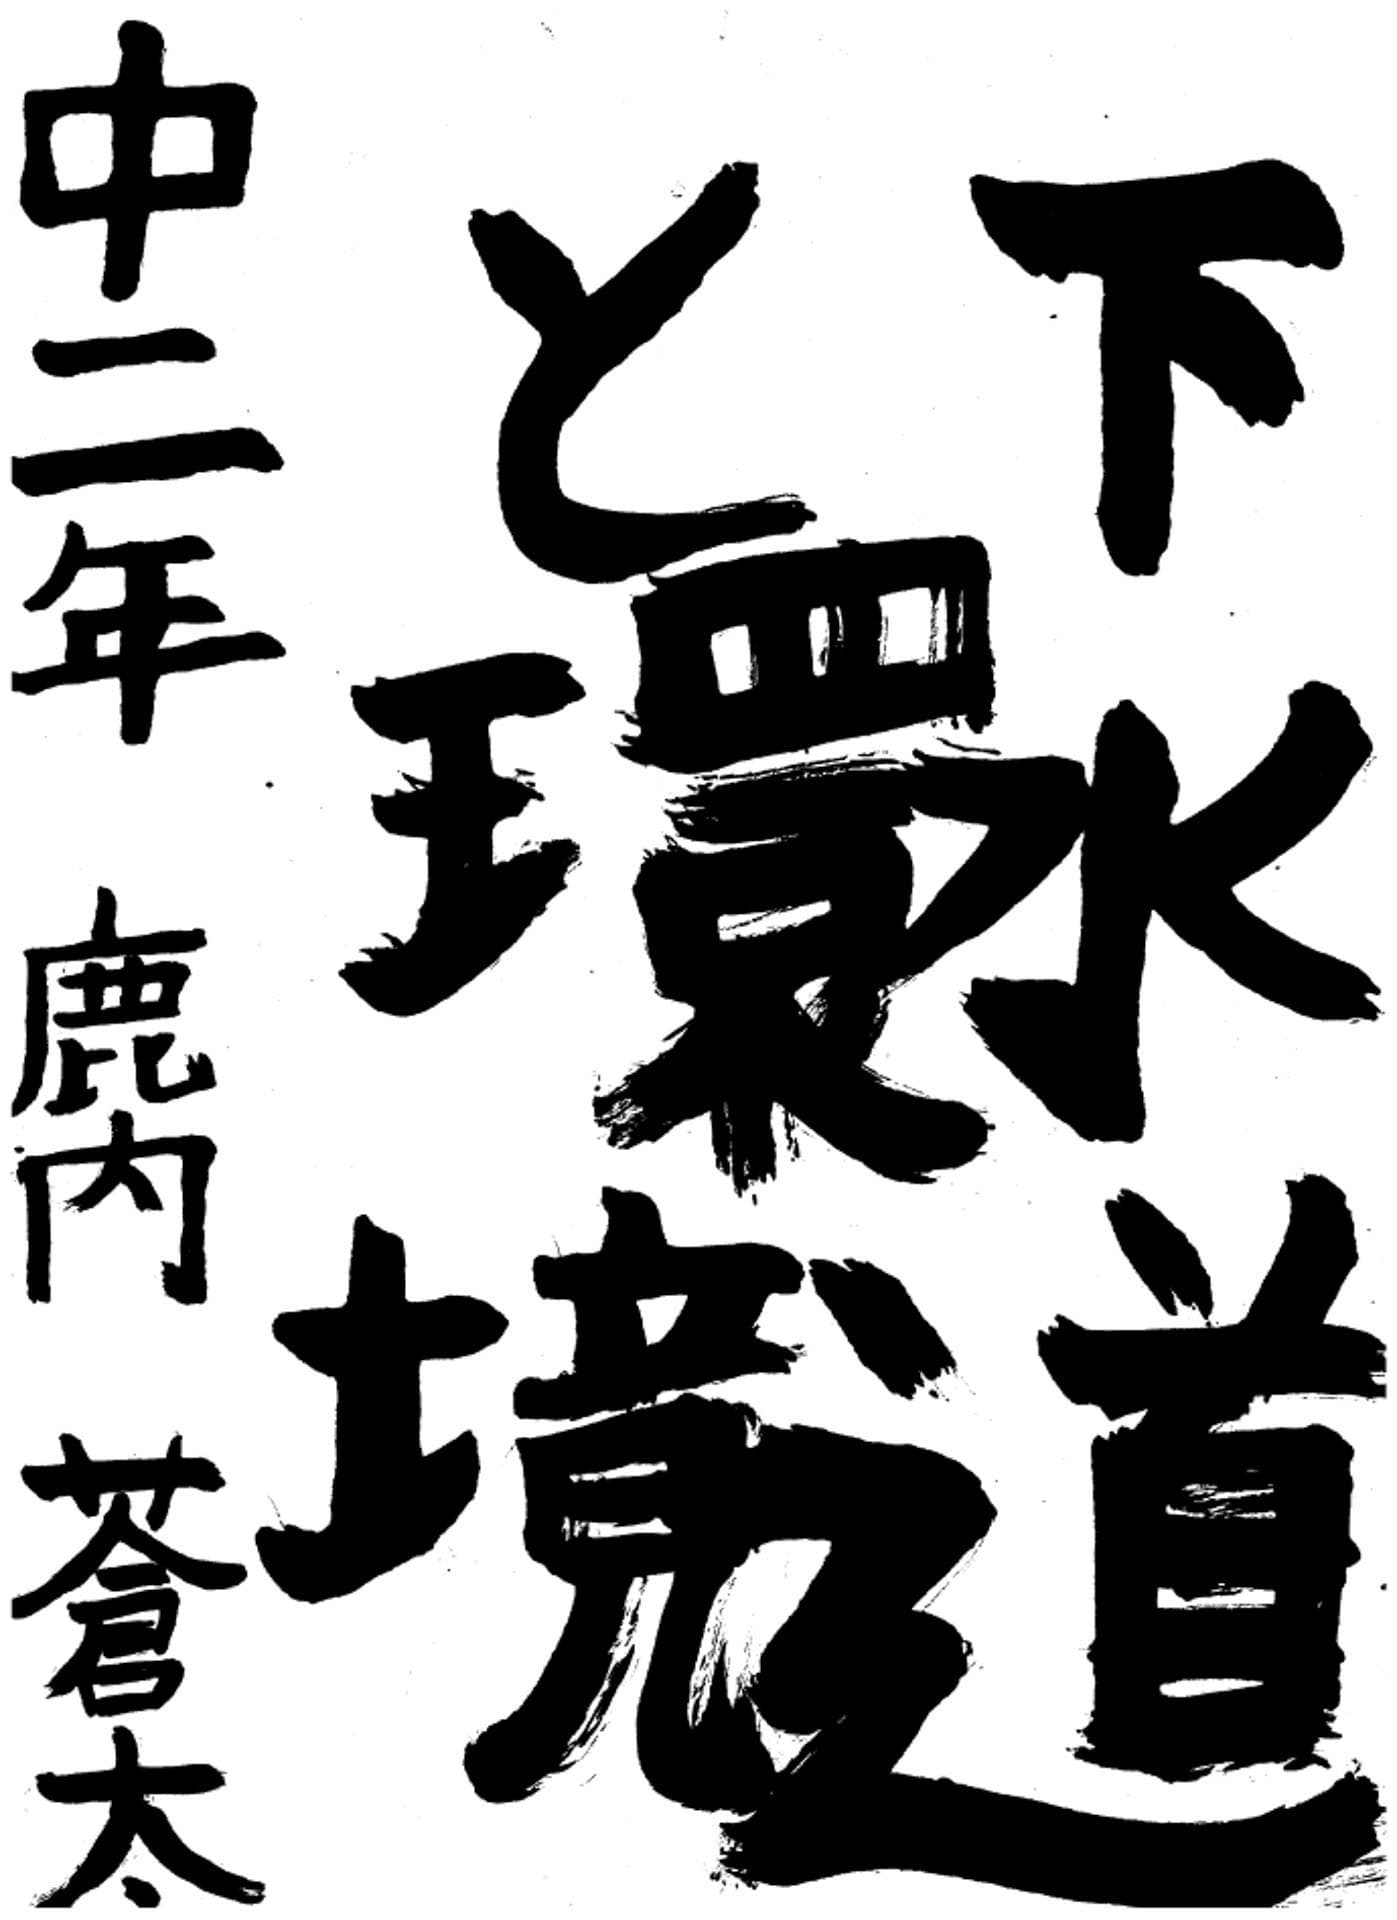 下水道
と環境
中二年 鹿内 蒼太